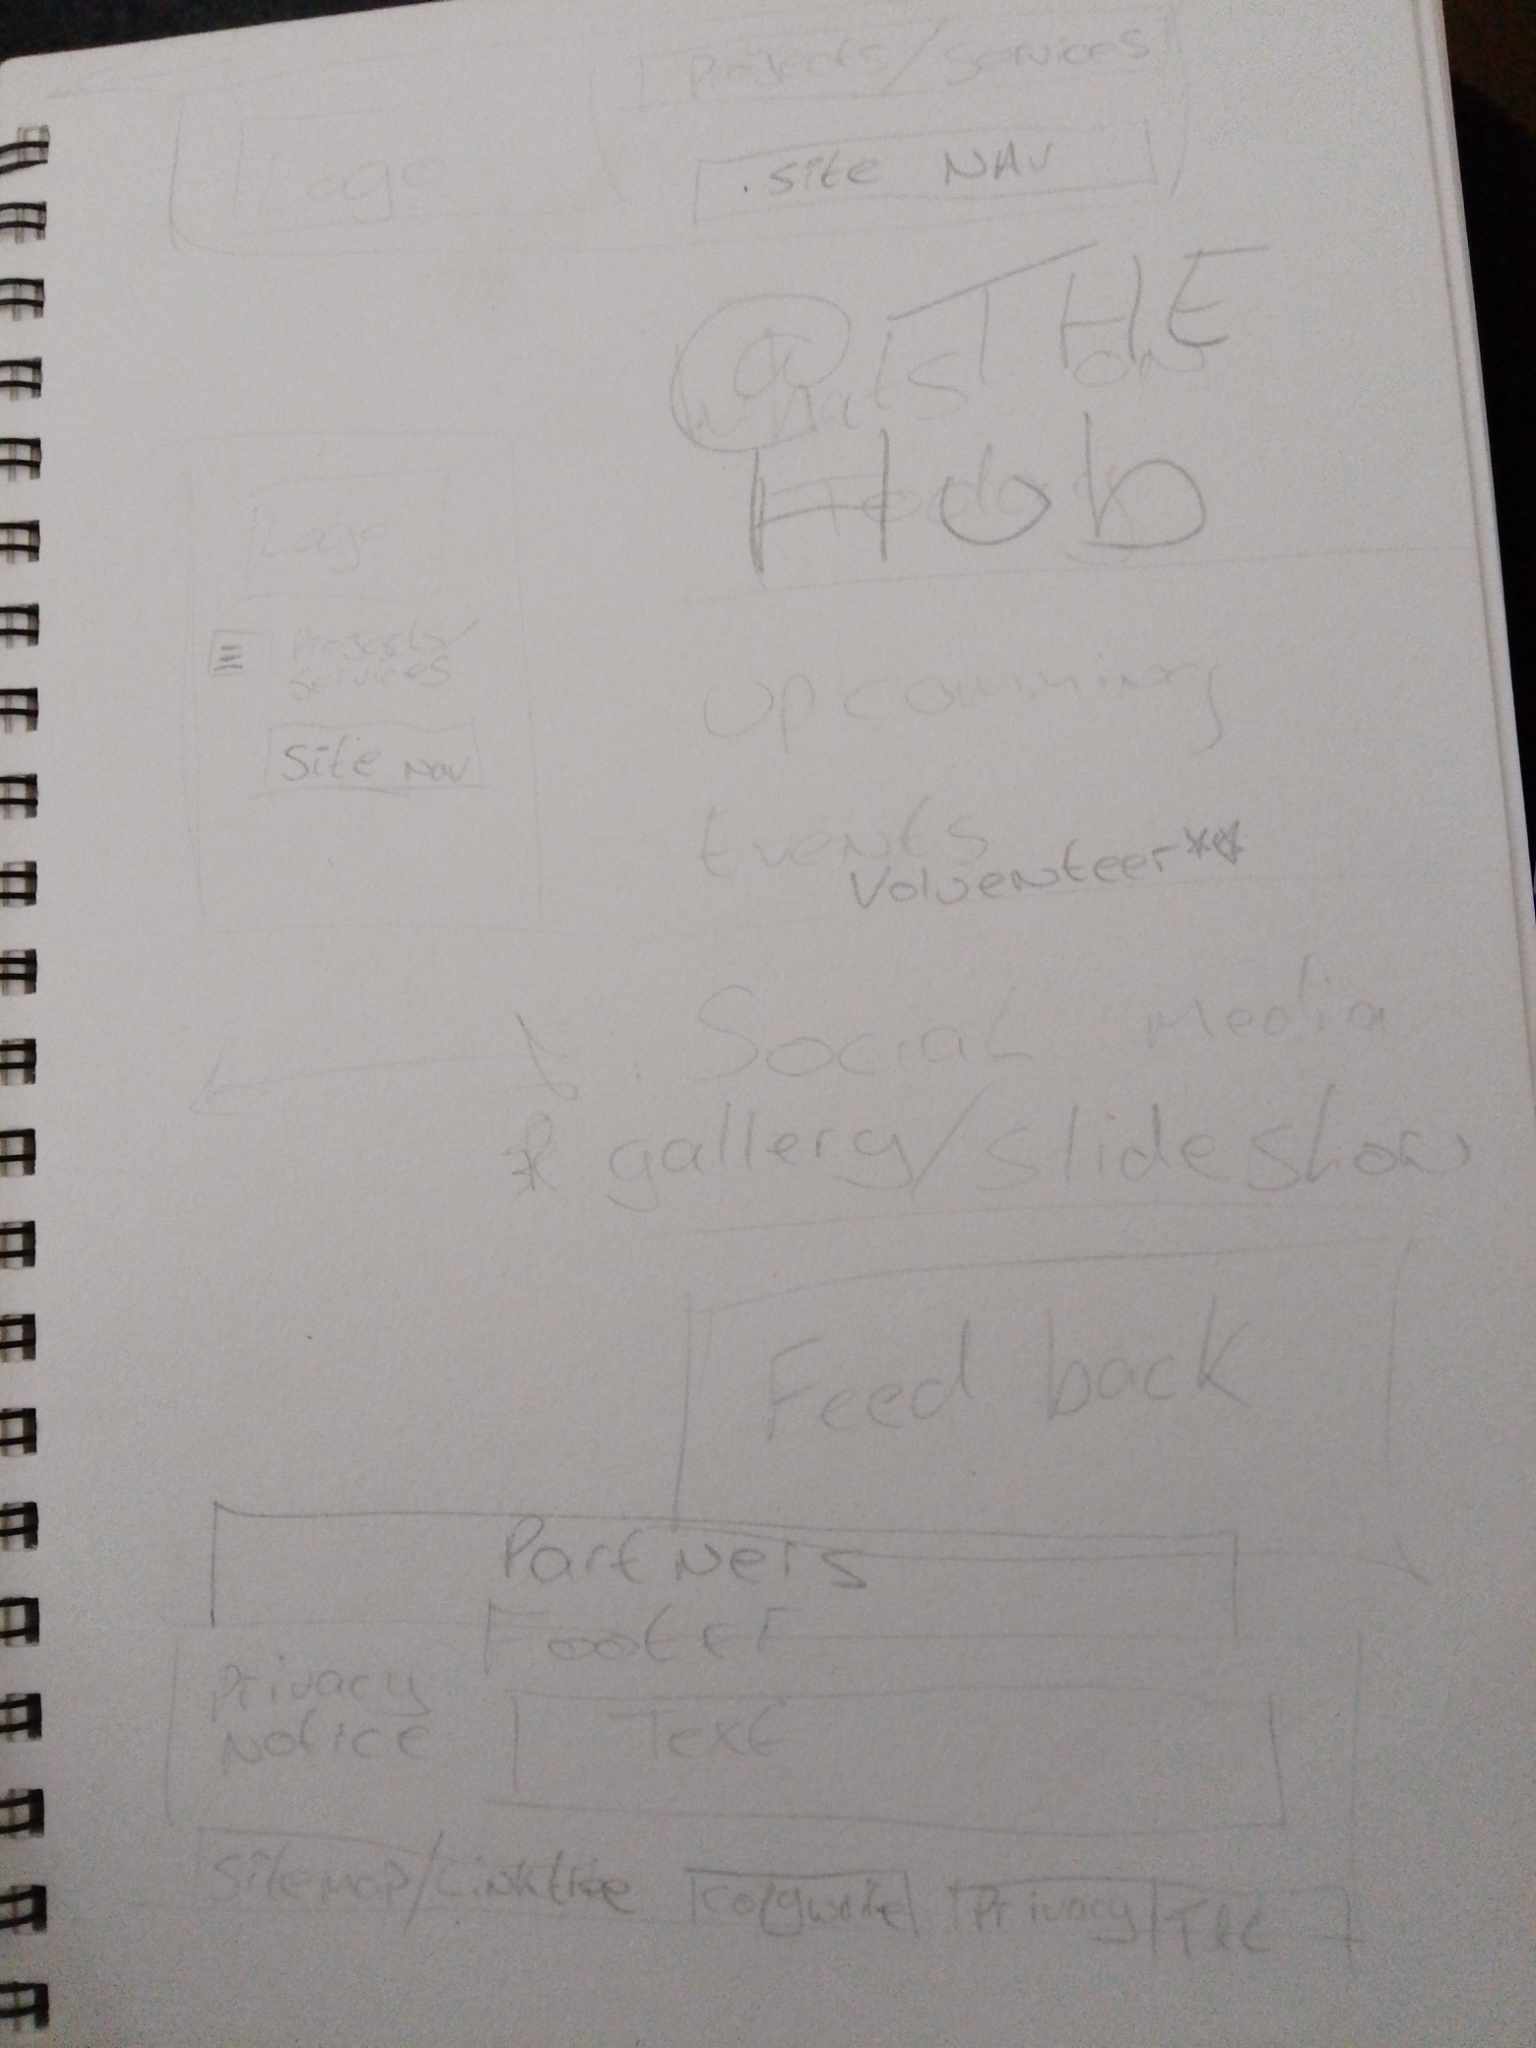 Projects/Services
Logo
.Site NAV
@ THE
What's ON
Hub
Today
Logo
Projects/
Services
Site NAV
Upcomming
Events
Voluenteer**
Social Media
* gallery/slideshow
Feed back
Partners
Footer
Privacy
Notice
Text
Sitemap/Linktree
Privacy
T&C